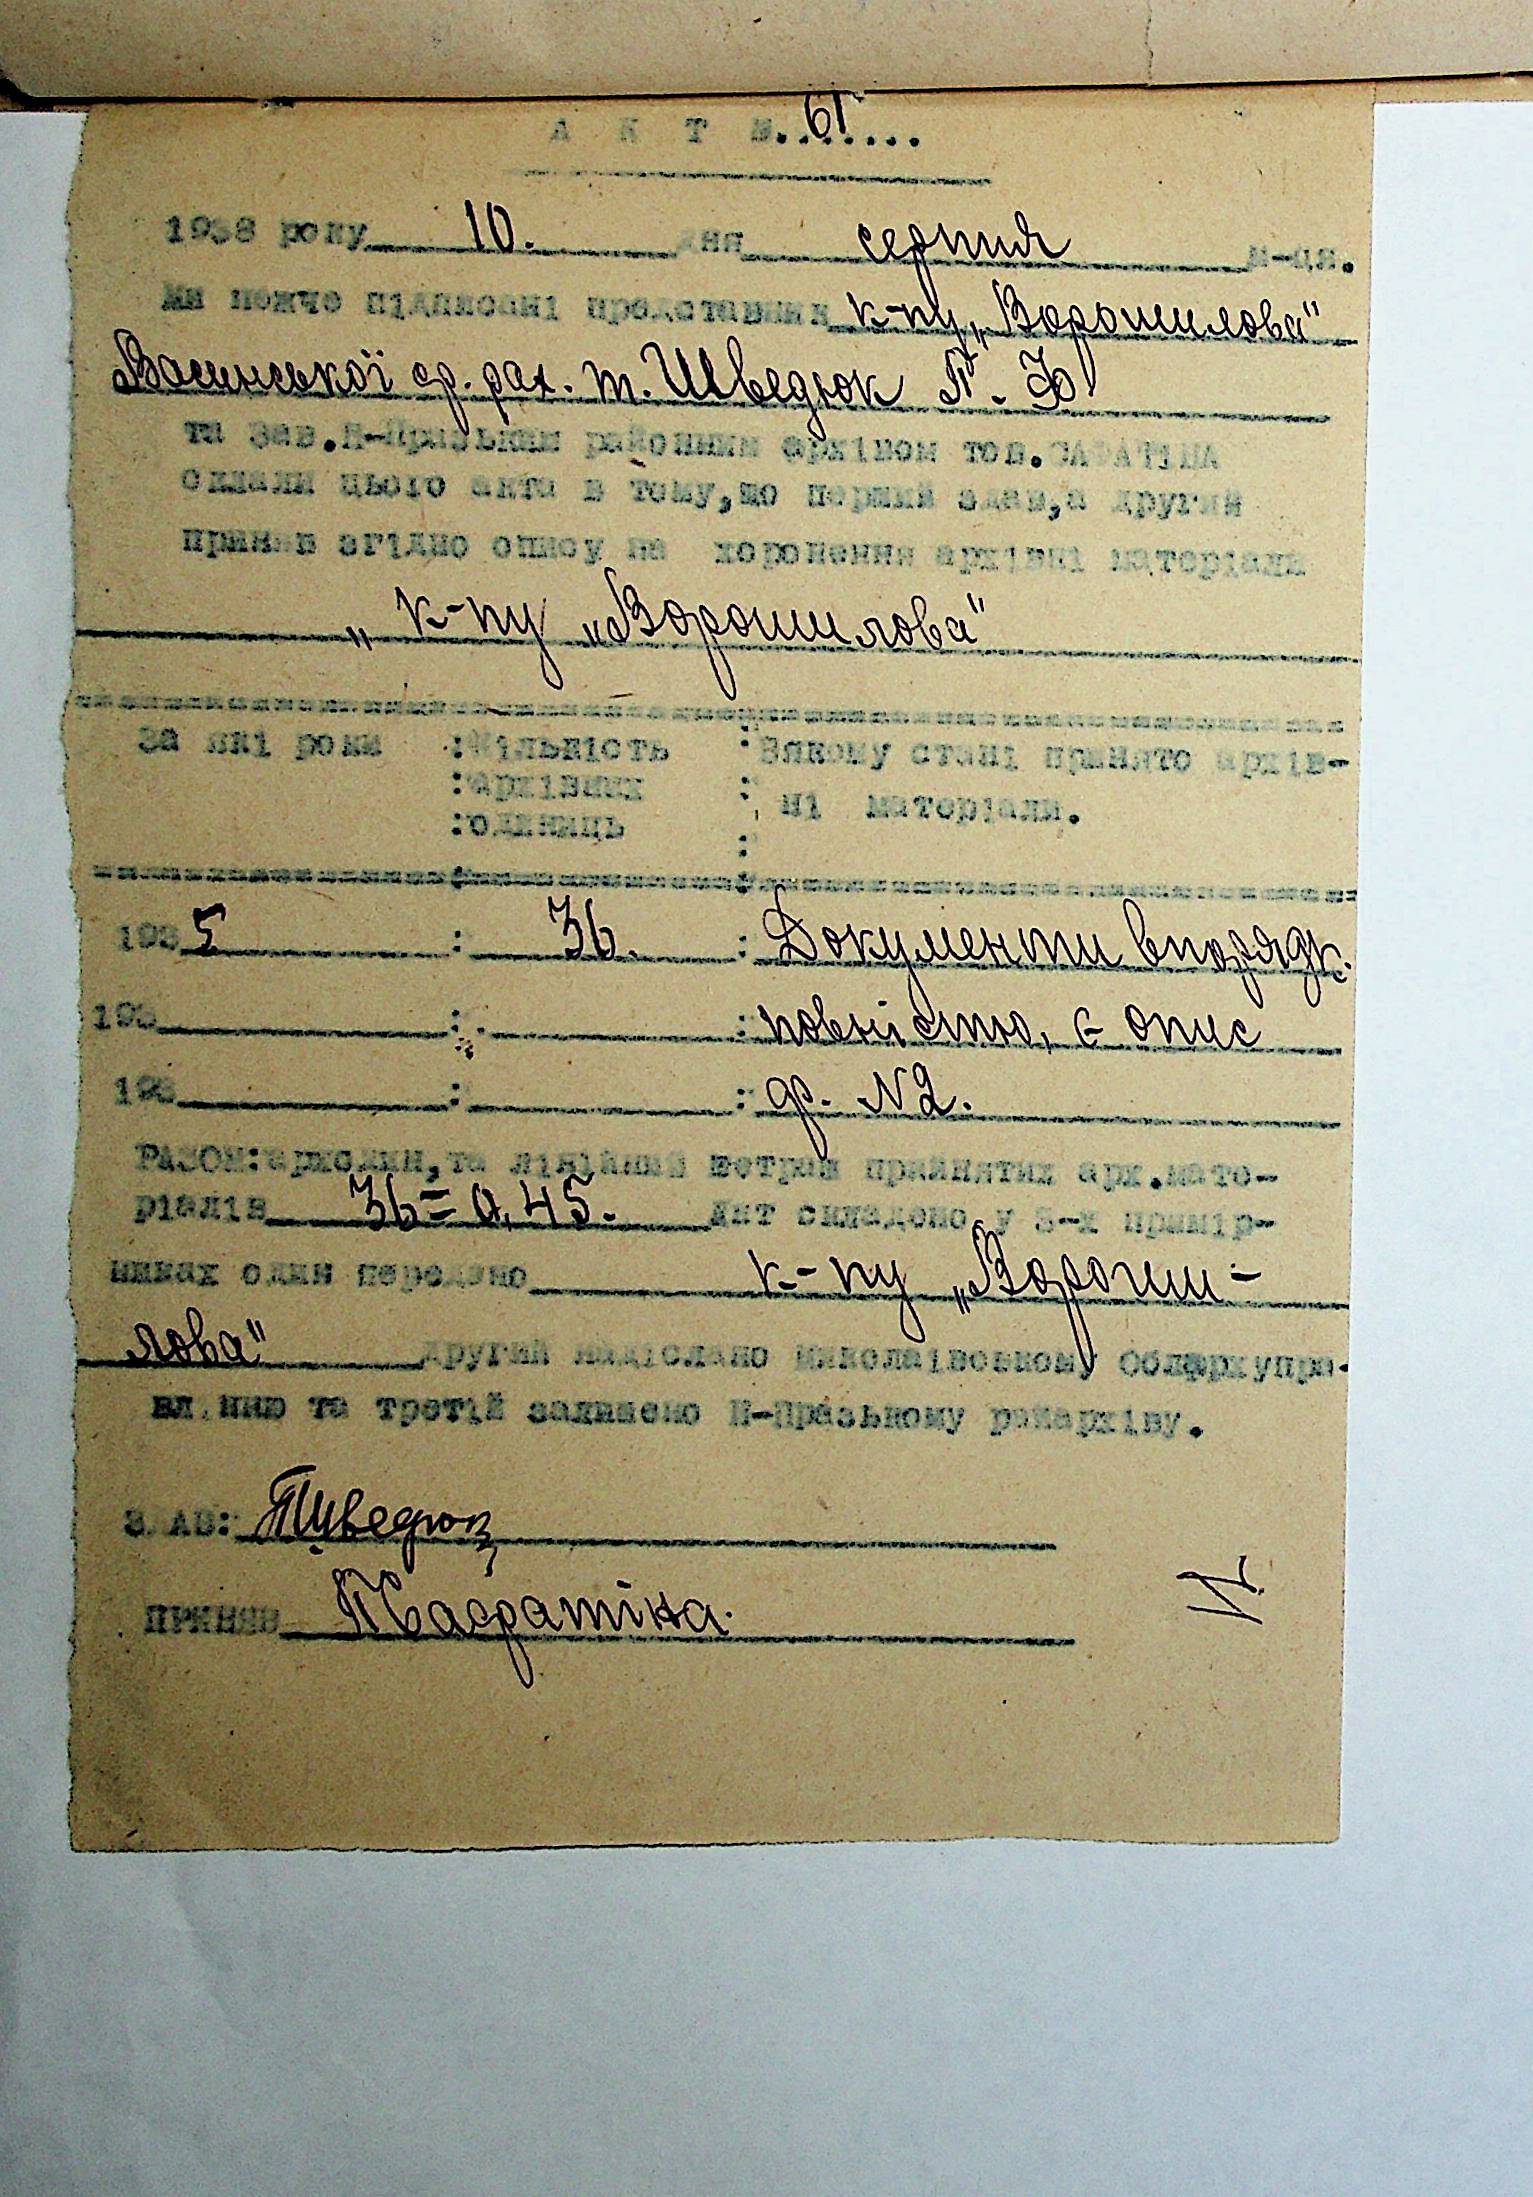 А К Т №. 61 .....
1938 року 10. дня серпня м-ця.
ми нежче підписані представник к-пу „Ворошилова"
ср. рах. т. Шведюк П. Ф
та зав. Н-Празьким районним архівом тов.
склали цього акта в тому, що перший здав, а другий
приняв згідно опису на хоронення архівні матеріали
„ к-пу „Ворошилова"
За які роки :Кількість : Вякому стані принято архів-
:архівних : ні матеріали.
:одиниць
:
1935 : 36. : Документи впорядк.
193 : : повністю, є опис
193 : : ф. №2.
РАЗОМ: арходин, та лінійний метраж прийнятих арх. мате-
ріалів 36 = 0,45. Акт складено у 3-х примір-
никах один передано к-пу „Вороши-
лова" другий надіслано Миколаівському Облархупра-
влінню та третій залишено Н-Празькому райархіву.
ЗДАВ: Шведюк
ПРИНЯВ